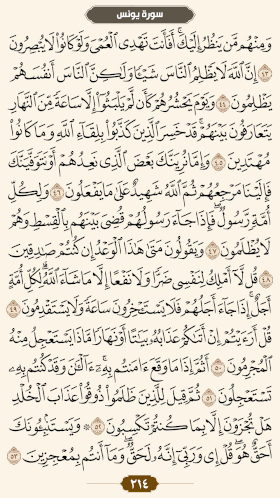 سورة يونس
وَمِنْهُم مَّن يَنظُرُ إِلَيْكَ ۚ أَفَأَنتَ تَهْدِى ٱلْعُمْىَ وَلَوْ كَانُوا۟ لَا يُبْصِرُونَ
٤٣ إِنَّ ٱللَّهَ لَا يَظْلِمُ ٱلنَّاسَ شَيْـًٔا وَلَـٰكِنَّ ٱلنَّاسَ أَنفُسَهُمْ
يَظْلِمُونَ ٤٤ وَيَوْمَ يَحْشُرُهُمْ كَأَن لَّمْ يَلْبَثُوٓا۟ إِلَّا سَاعَةً مِّنَ ٱلنَّهَارِ
يَتَعَارَفُونَ بَيْنَهُمْ ۚ قَدْ خَسِرَ ٱلَّذِينَ كَذَّبُوا۟ بِلِقَآءِ ٱللَّهِ وَمَا كَانُوا۟
مُهْتَدِينَ ٤٥ وَإِمَّا نُرِيَنَّكَ بَعْضَ ٱلَّذِى نَعِدُهُمْ أَوْ نَتَوَفَّيَنَّكَ
فَإِلَيْنَا مَرْجِعُهُمْ ثُمَّ ٱللَّهُ شَهِيدٌ عَلَىٰ مَا يَفْعَلُونَ ٤٦ وَلِكُلِّ
أُمَّةٍ رَّسُولٌ ۖ فَإِذَا جَآءَ رَسُولُهُمْ قُضِىَ بَيْنَهُم بِٱلْقِسْطِ وَهُمْ
لَا يُظْلَمُونَ ٤٧ وَيَقُولُونَ مَتَىٰ هَـٰذَا ٱلْوَعْدُ إِن كُنتُمْ صَـٰدِقِينَ
٤٨ قُل لَّآ أَمْلِكُ لِنَفْسِى ضَرًّا وَلَا نَفْعًا إِلَّا مَا شَآءَ ٱللَّهُ ۗ لِكُلِّ أُمَّةٍ
أَجَلٌ ۚ إِذَا جَآءَ أَجَلُهُمْ فَلَا يَسْتَـْٔخِرُونَ سَاعَةً ۖ وَلَا يَسْتَقْدِمُونَ ٤٩
قُلْ أَرَءَيْتُمْ إِنْ أَتَىٰكُمْ عَذَابُهُۥ بَيَـٰتًا أَوْ نَهَارًا مَّاذَا يَسْتَعْجِلُ مِنْهُ
ٱلْمُجْرِمُونَ ٥٠ أَثُمَّ إِذَا مَا وَقَعَ ءَامَنتُم بِهِۦٓ ۚ ءَآلْـَٔـٰنَ وَقَدْ كُنتُم بِهِۦ
تَسْتَعْجِلُونَ ٥١ ثُمَّ قِيلَ لِلَّذِينَ ظَلَمُوا۟ ذُوقُوا۟ عَذَابَ ٱلْخُلْدِ
هَلْ تُجْزَوْنَ إِلَّا بِمَا كُنتُمْ تَكْسِبُونَ ٥٢ ۞ وَيَسْتَنۢبِـُٔونَكَ
أَحَقٌّ هُوَ ۖ قُلْ إِى وَرَبِّىٓ إِنَّهُۥ لَحَقٌّ ۖ وَمَآ أَنتُم بِمُعْجِزِينَ ٥٣
٢١٤